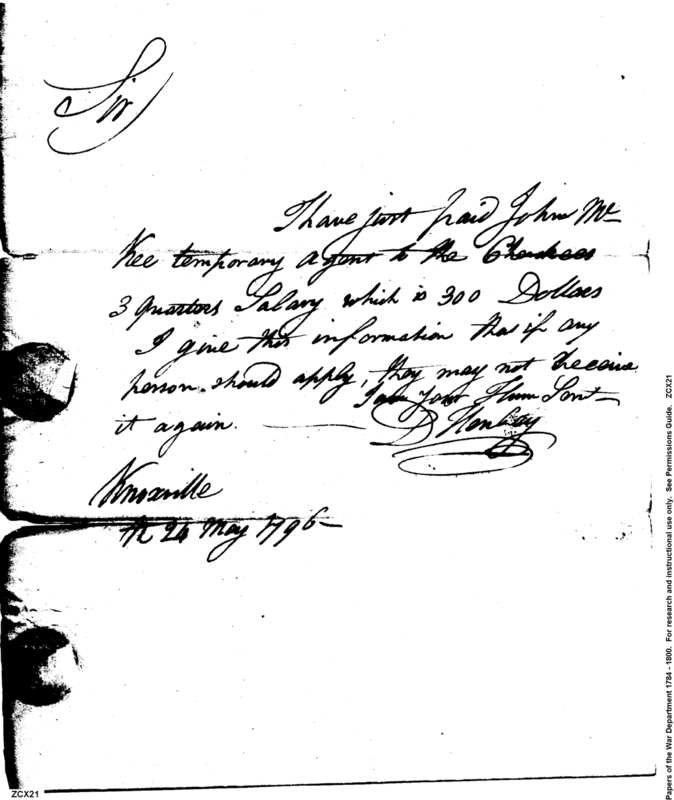 Sir
I have just paid John Mc
Kee temporary agent to the Cherokees
3 quarters Salary which is 300 Dollars
I give this information that if any
person should apply, they may not receive
it again.
I am your Hum Servt
D Henley
Knoxville
the 24 May 1796
Papers of the War Department 1784 - 1800. For research and instructional use only. See Permissions Guide. ZCX21
ZCX21